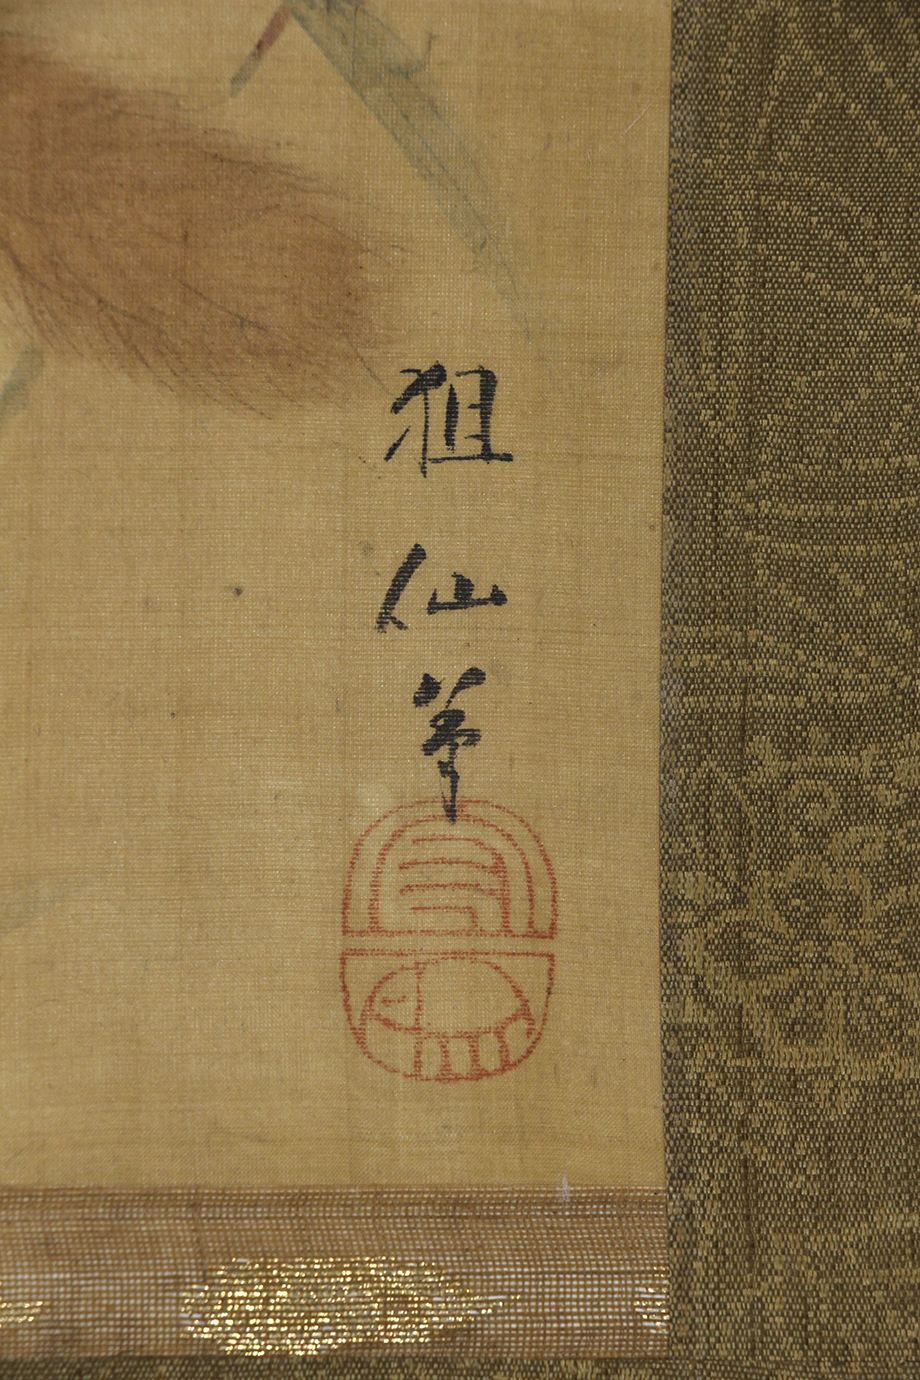 狙仙筆